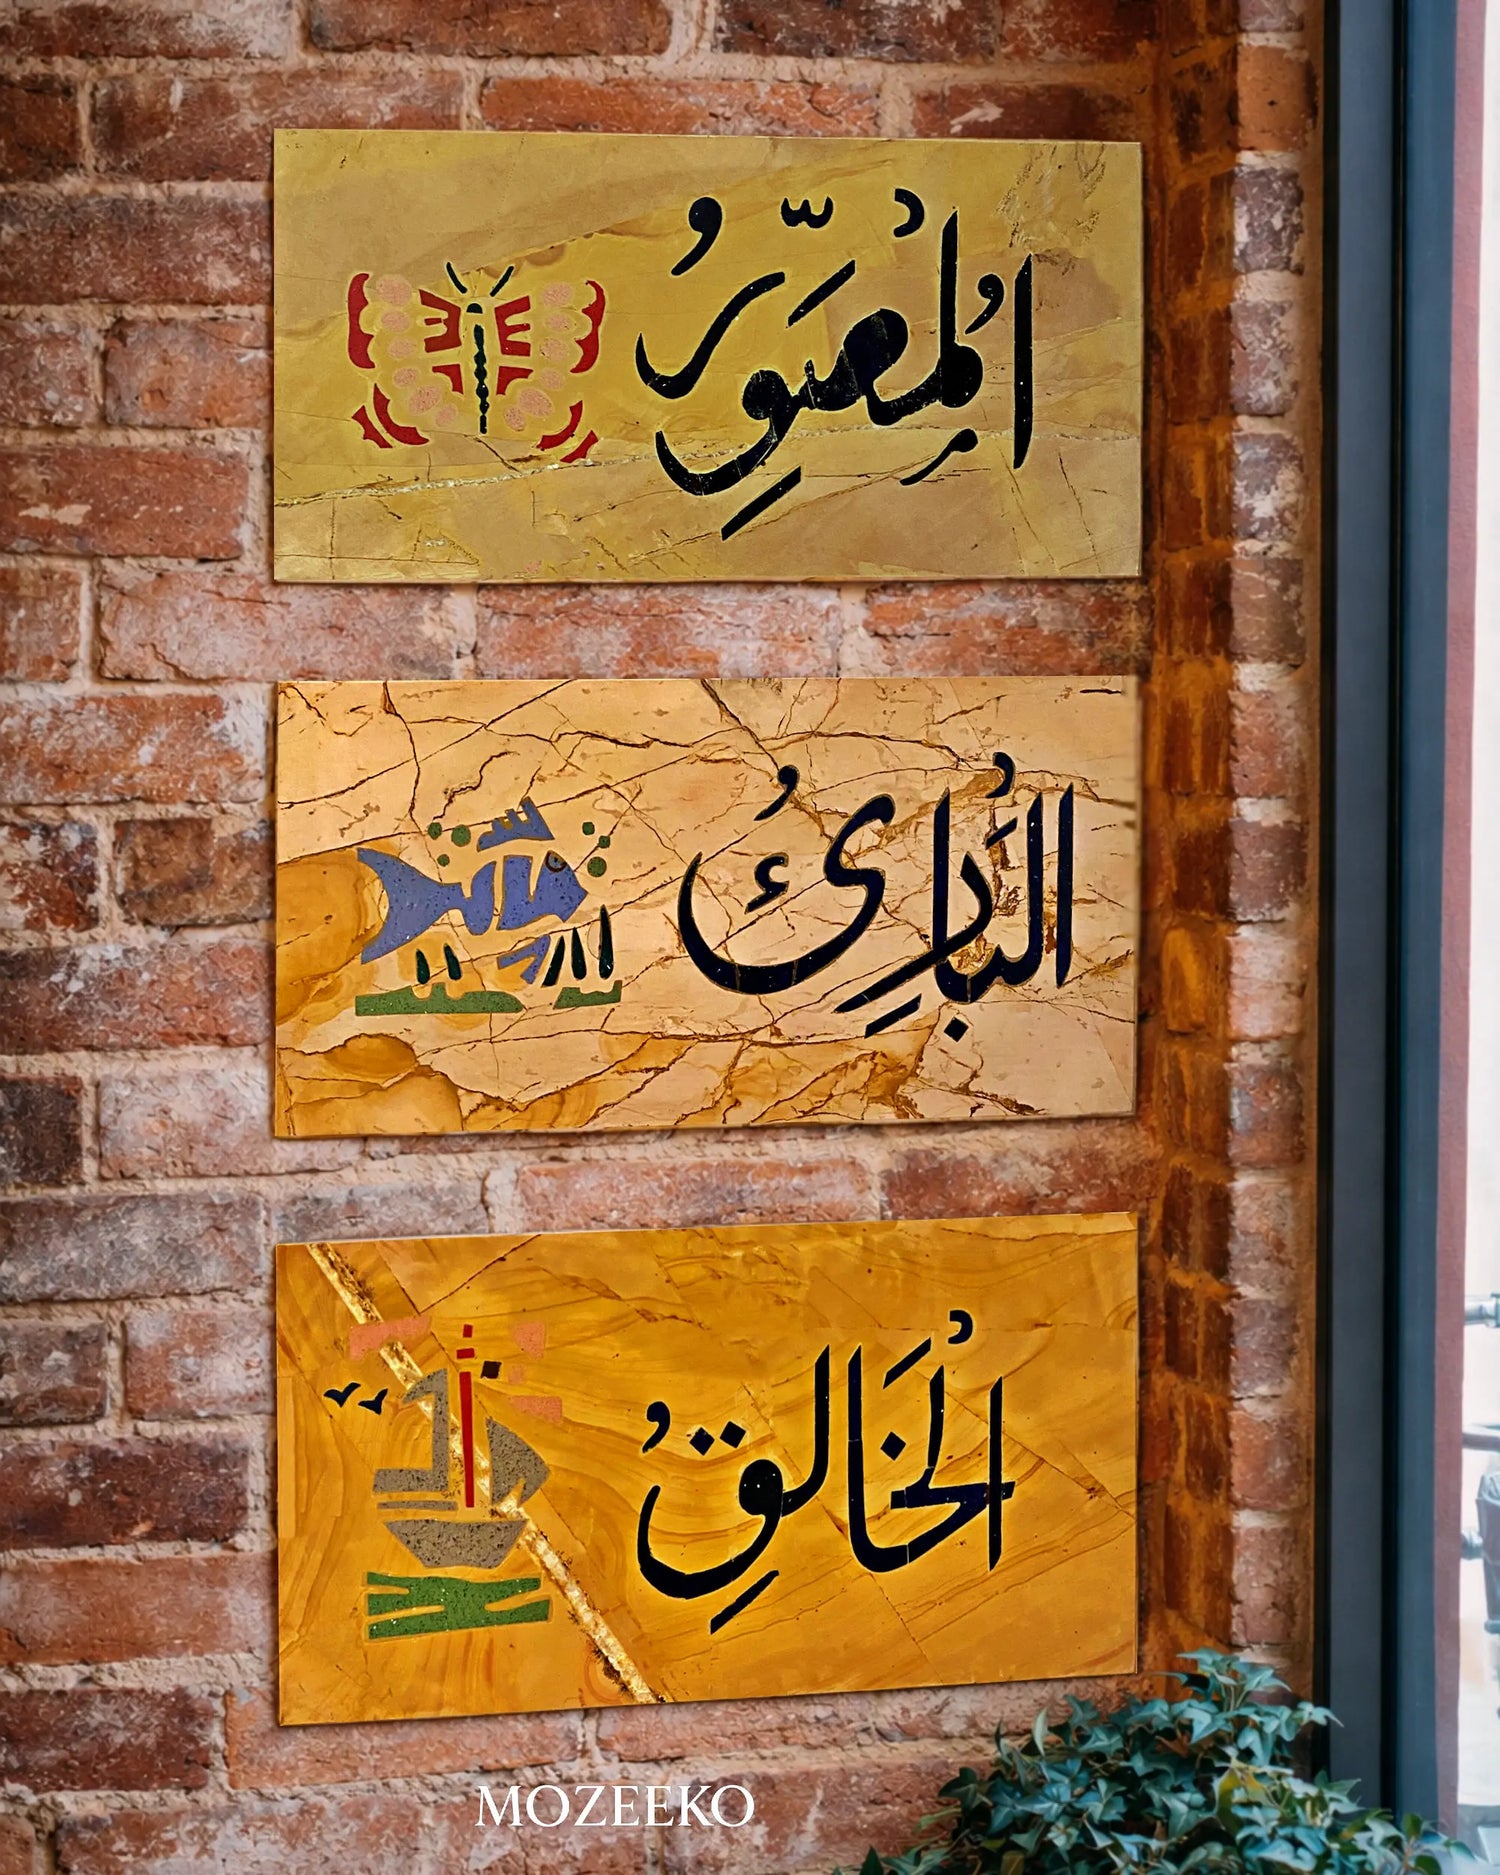 المُصَوِّرُ
البَارِئُ
الْخَالِقُ
MOZEEKO